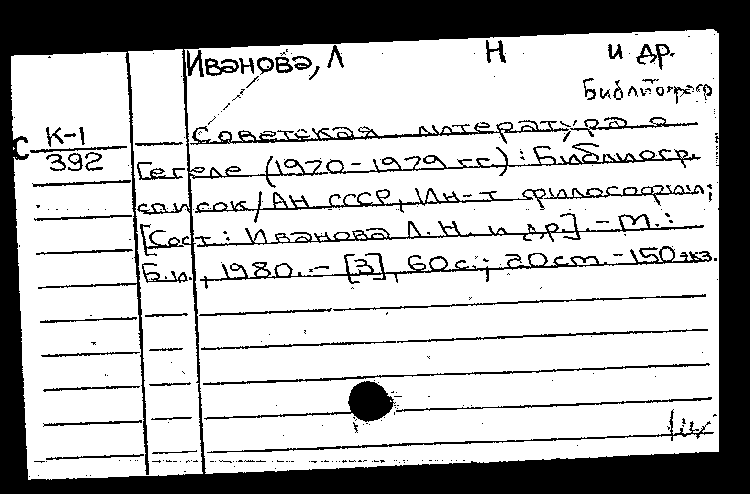 Иванова, Л Н и др.
Библиограф
С К-1
392
Советская литература о
Гегеле (1970-1979 гг.) : Библиогр.
список/АН СССР, Ин-т философии;
[Сост.: Иванова Л. Н. и др]. - М.:
Б.и., 1980. - [3], 60 с.; 20 cm. - 150 экз.